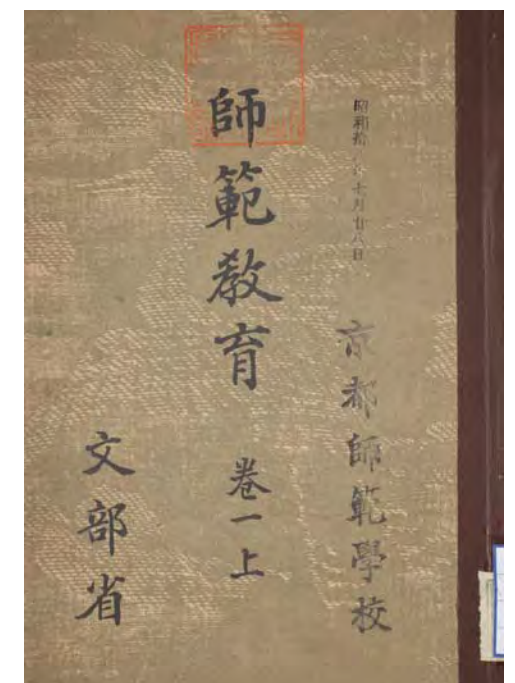 昭和拾 年十月廿八日
京都師範學校
師範教育 卷一上
文部省